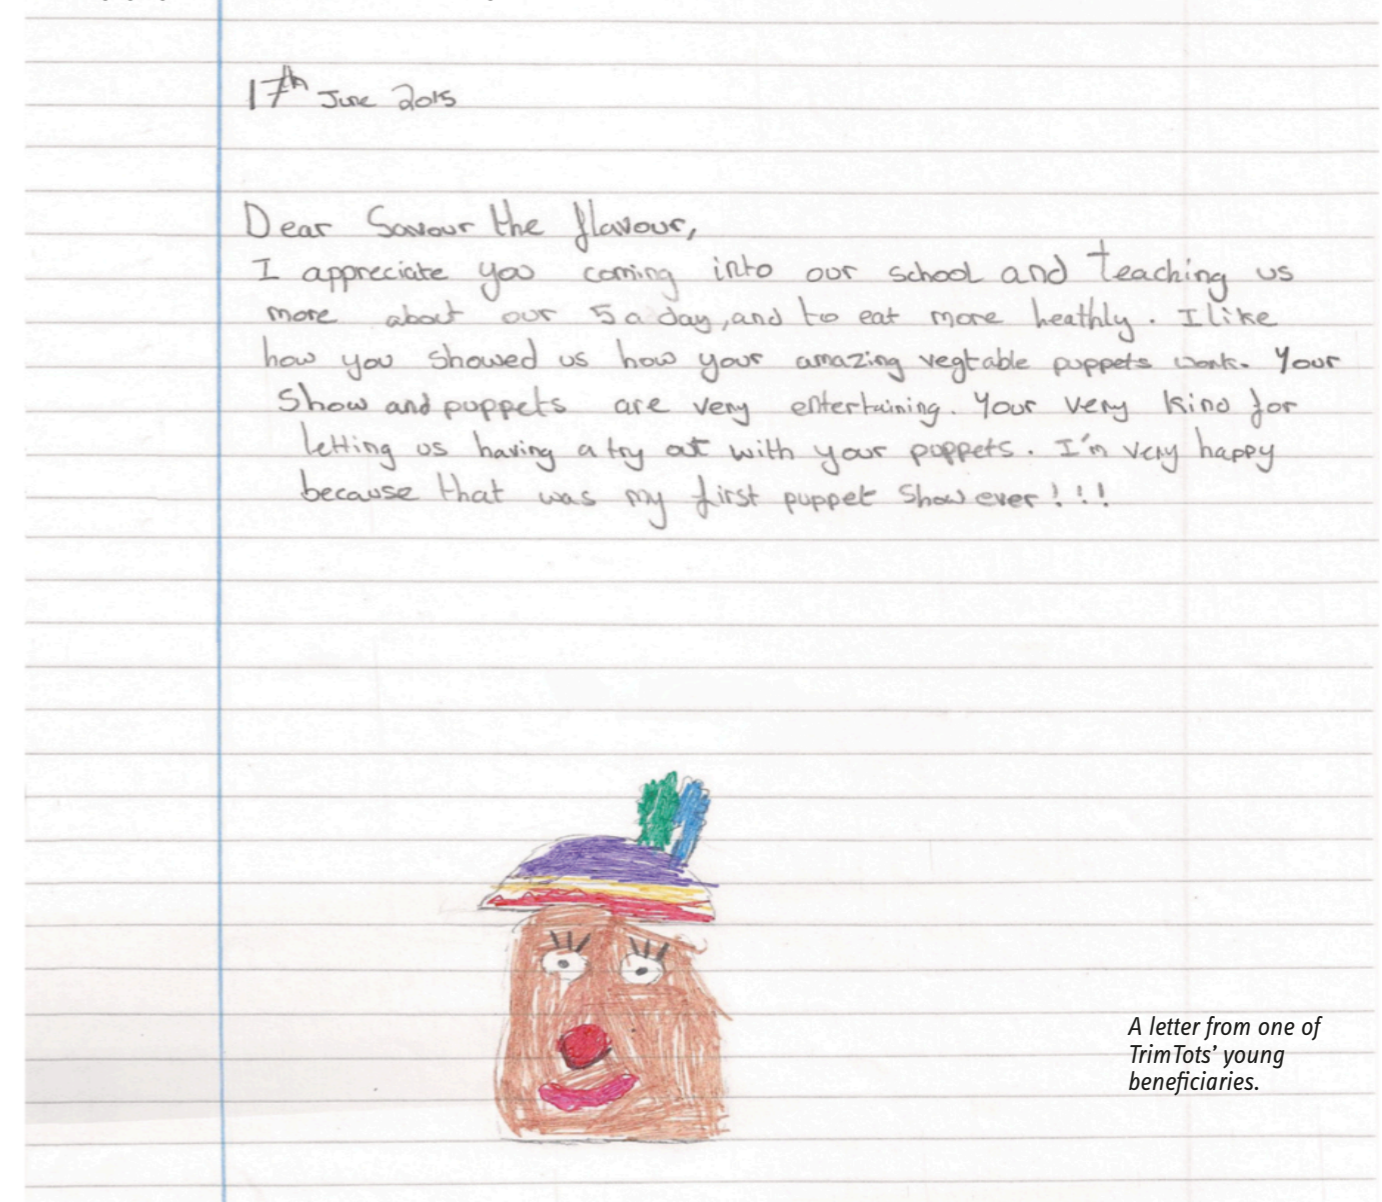 17th June 2015
Dear Savour the flavour,
I appreciate you coming into our school and teaching us
more about our 5 a day, and to eat more heathly. I like
how you showed us how your amazing vegtable puppets work. Your
Show and puppets are very entertaining. Your very kind for
letting us having a try out with your puppets. I'm very happy
because that was my first puppet show ever!!!
A letter from one of
TrimTots' young
beneficiaries.